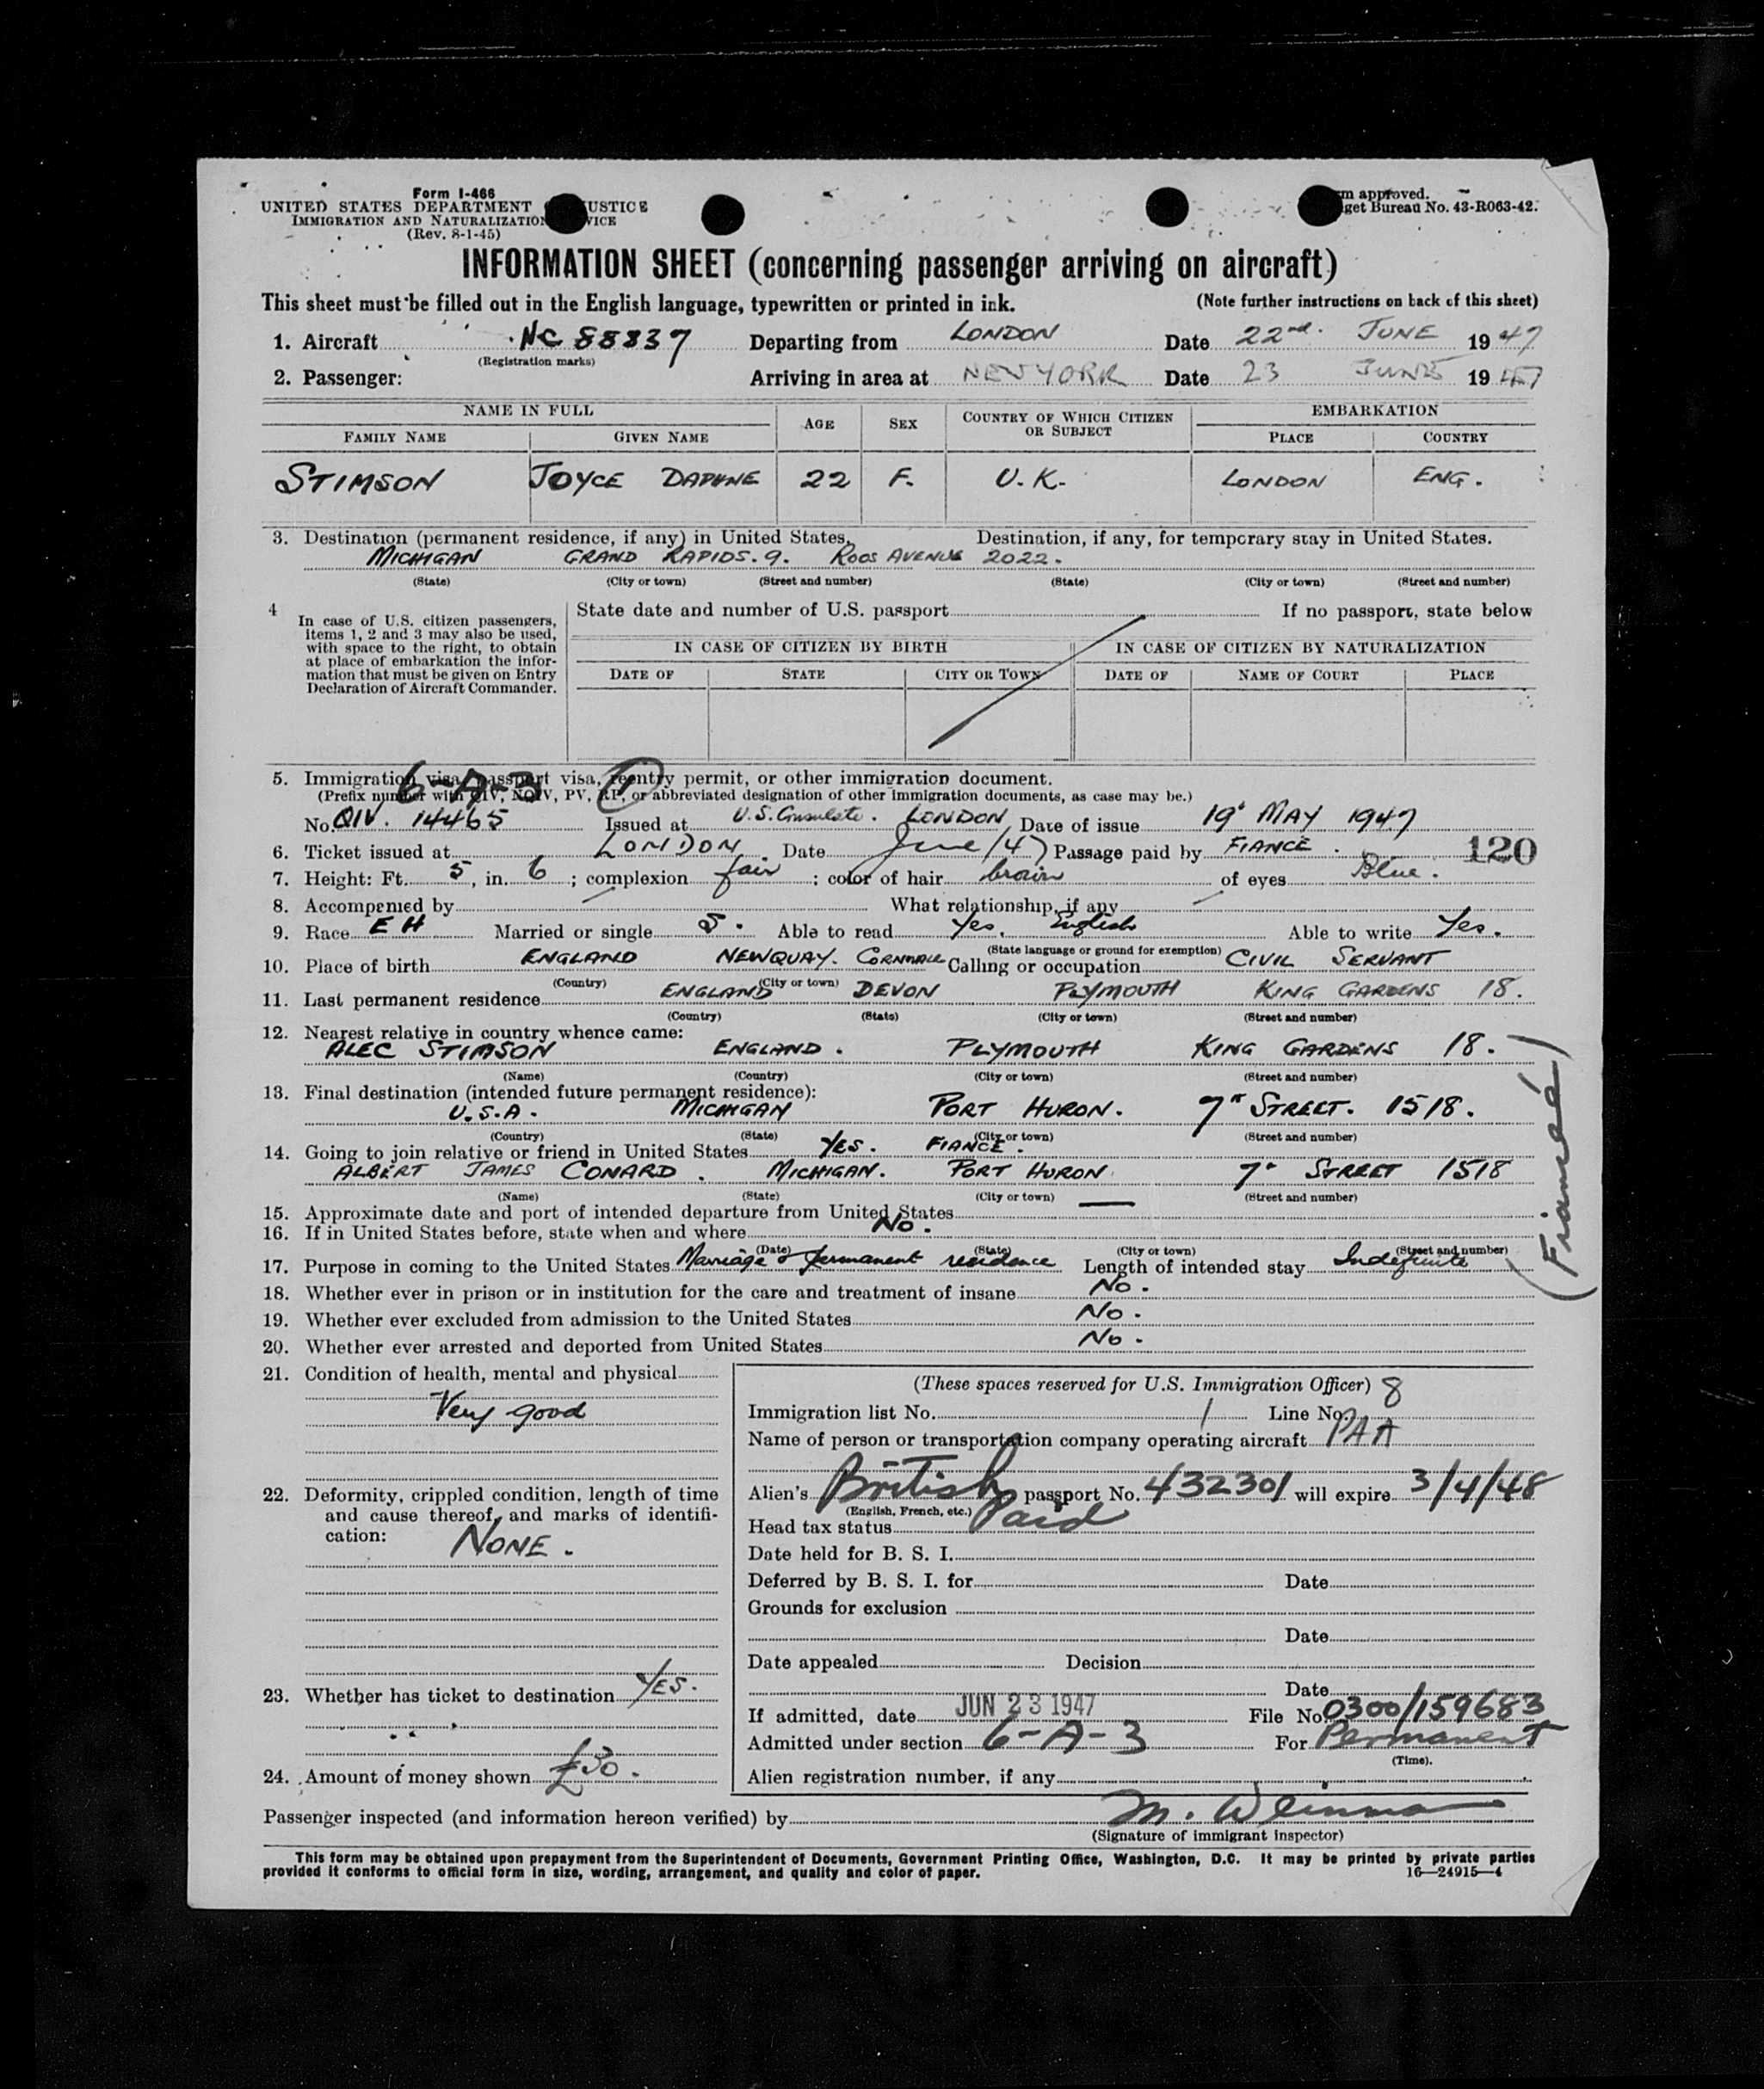 Form I-466
UNITED STATES DEPARTMENT USTICE
IMMIGRATION AND NATURALIZATION VICE
(Rev. 8-1-45)
m approved.
get Bureau No. 43-R063-42.
INFORMATION SHEET (concerning passenger arriving on aircraft)
This sheet must be filled out in the English language, typewritten or printed in ink. (Note further instructions on back of this sheet)
1. Aircraft NC 88837 Departing from LONDON Date 22nd. JUNE 1947
(Registration marks)
2. Passenger: Arriving in area at NEW YORK Date 23 JUNE 1947
NAME IN FULL AGE SEX COUNTRY OF WHICH CITIZEN OR SUBJECT EMBARKATION
FAMILY NAME GIVEN NAME PLACE COUNTRY
STIMSON JOYCE DAPHNE 22 F. U.K. LONDON ENG.
3. Destination (permanent residence, if any) in United States. Destination, if any, for temporary stay in United States.
MICHIGAN GRAND RAPIDS. 9. ROOS AVENUE 2022.
(State) (City or town) (Street and number) (State) (City or town) (Street and number)
4 In case of U.S. citizen passengers, items 1, 2 and 3 may also be used, with space to the right, to obtain at place of embarkation the information that must be given on Entry Declaration of Aircraft Commander.
State date and number of U.S. passport If no passport, state below
IN CASE OF CITIZEN BY BIRTH IN CASE OF CITIZEN BY NATURALIZATION
DATE OF STATE CITY OR TOWN DATE OF NAME OF COURT PLACE
5. Immigration visa, passport visa, reentry permit, or other immigration document.
6-A-3 1
(Prefix number with QIV, NQIV, PV, RP, or abbreviated designation of other immigration documents, as case may be.)
No. QIV. 14465 Issued at U.S. Consulate. LONDON Date of issue 19' MAY 1947
6. Ticket issued at LONDON. Date June/47 Passage paid by FIANCE. 120
7. Height: Ft. 5, in. 6; complexion fair; color of hair brown of eyes Blue.
8. Accompanied by What relationship, if any
9. Race EH Married or single S. Able to read Yes. English Able to write Yes.
(State language or ground for exemption)
10. Place of birth ENGLAND NEWQUAY. CORNWALL Calling or occupation CIVIL SERVANT
(Country) (City or town)
11. Last permanent residence ENGLAND DEVON PLYMOUTH KING GARDENS 18.
(Country) (State) (City or town) (Street and number)
12. Nearest relative in country whence came:
ALEC STIMSON ENGLAND. PLYMOUTH KING GARDENS 18.
(Name) (Country) (City or town) (Street and number)
13. Final destination (intended future permanent residence):
U.S.A. MICHIGAN PORT HURON. 7" STREET. 1518.
(Country) (State) (City or town) (Street and number)
14. Going to join relative or friend in United States YES. FIANCE.
ALBERT JAMES CONARD. MICHIGAN. PORT HURON 7" STREET 1518
(Name) (State) (City or town) (Street and number)
(Fianceé)
15. Approximate date and port of intended departure from United States —
16. If in United States before, state when and where No.
(Date) (State) (City or town) (Street and number)
17. Purpose in coming to the United States Marriage & permanent residence Length of intended stay Indefinite
18. Whether ever in prison or in institution for the care and treatment of insane No.
19. Whether ever excluded from admission to the United States No.
20. Whether ever arrested and deported from United States No.
21. Condition of health, mental and physical
Very good
22. Deformity, crippled condition, length of time and cause thereof, and marks of identification: NONE.
23. Whether has ticket to destination YES.
24. Amount of money shown £30.
(These spaces reserved for U.S. Immigration Officer)
Immigration list No. 1 Line No. 8
Name of person or transportation company operating aircraft PAA
Alien's British passport No. 432301 will expire 3/4/48
(English, French, etc.)
Head tax status Paid
Date held for B. S. I.
Deferred by B. S. I. for Date
Grounds for exclusion
Date
Date appealed Decision
Date
If admitted, date JUN 23 1947 File No. 0300/159683
Admitted under section 6-A-3 For Permanent
(Time).
Alien registration number, if any
Passenger inspected (and information hereon verified) by M.
(Signature of immigrant inspector)
This form may be obtained upon prepayment from the Superintendent of Documents, Government Printing Office, Washington, D.C. It may be printed by private parties
provided it conforms to official form in size, wording, arrangement, and quality and color of paper. 16—24915—4